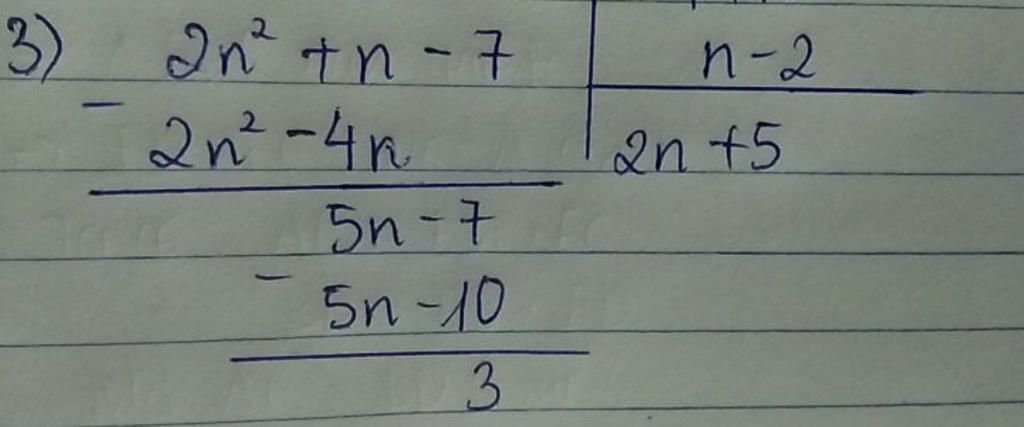 3) 2n² + n - 7 | n - 2
- 2n² - 4n | 2n + 5
5n - 7
- 5n - 10
3